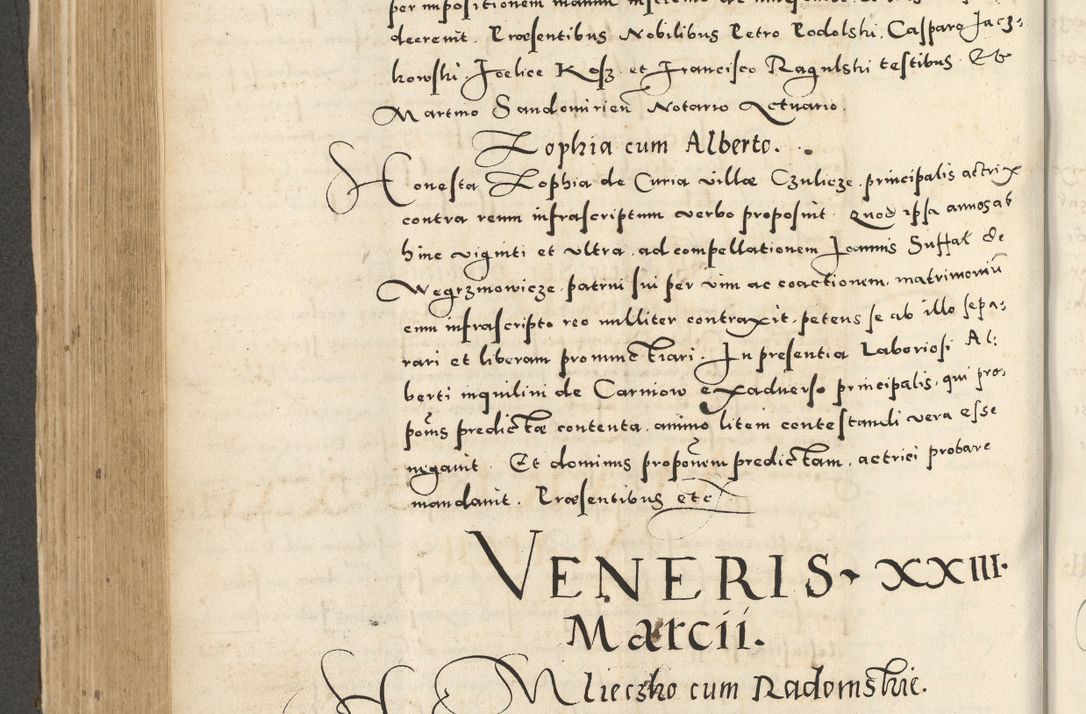 per impositionem manuum
decrevit. Præsentibus Nobilibus Petro Podolski, Casparo Jacz:
kowski. Joelice Kosz et Francisco Ragulski testibus. Et
Martino Sandomirien Notario Actuario.
Zophia cum Alberto.
Honesta Zophia de Curia villæ Czulicze principalis actrix
contra reum infrascriptum verbo proposuit. Quod ipsa annos ab
hinc viginti et ultra, ad compellationem Joannis Suffal de
Wegrzinowicze patrui sui per vim ac coactionem, matrimoniũ
cum infrascripto reo nulliter contraxit, petens se ab illo sepa:
rari et liberam pronunctiari. In presentia Laboriosi Al:
berti inquilini de Carniow exadverso principalis, qui pro:
ponis predictæ contenta, animo litem contestandi vera esse
negavit. Et dominus proponem predictam, actrici probare
mandavit. Præsentibus etc
VENERIS XXIII.
Marcii.
Mlieczko cum Radomskie.